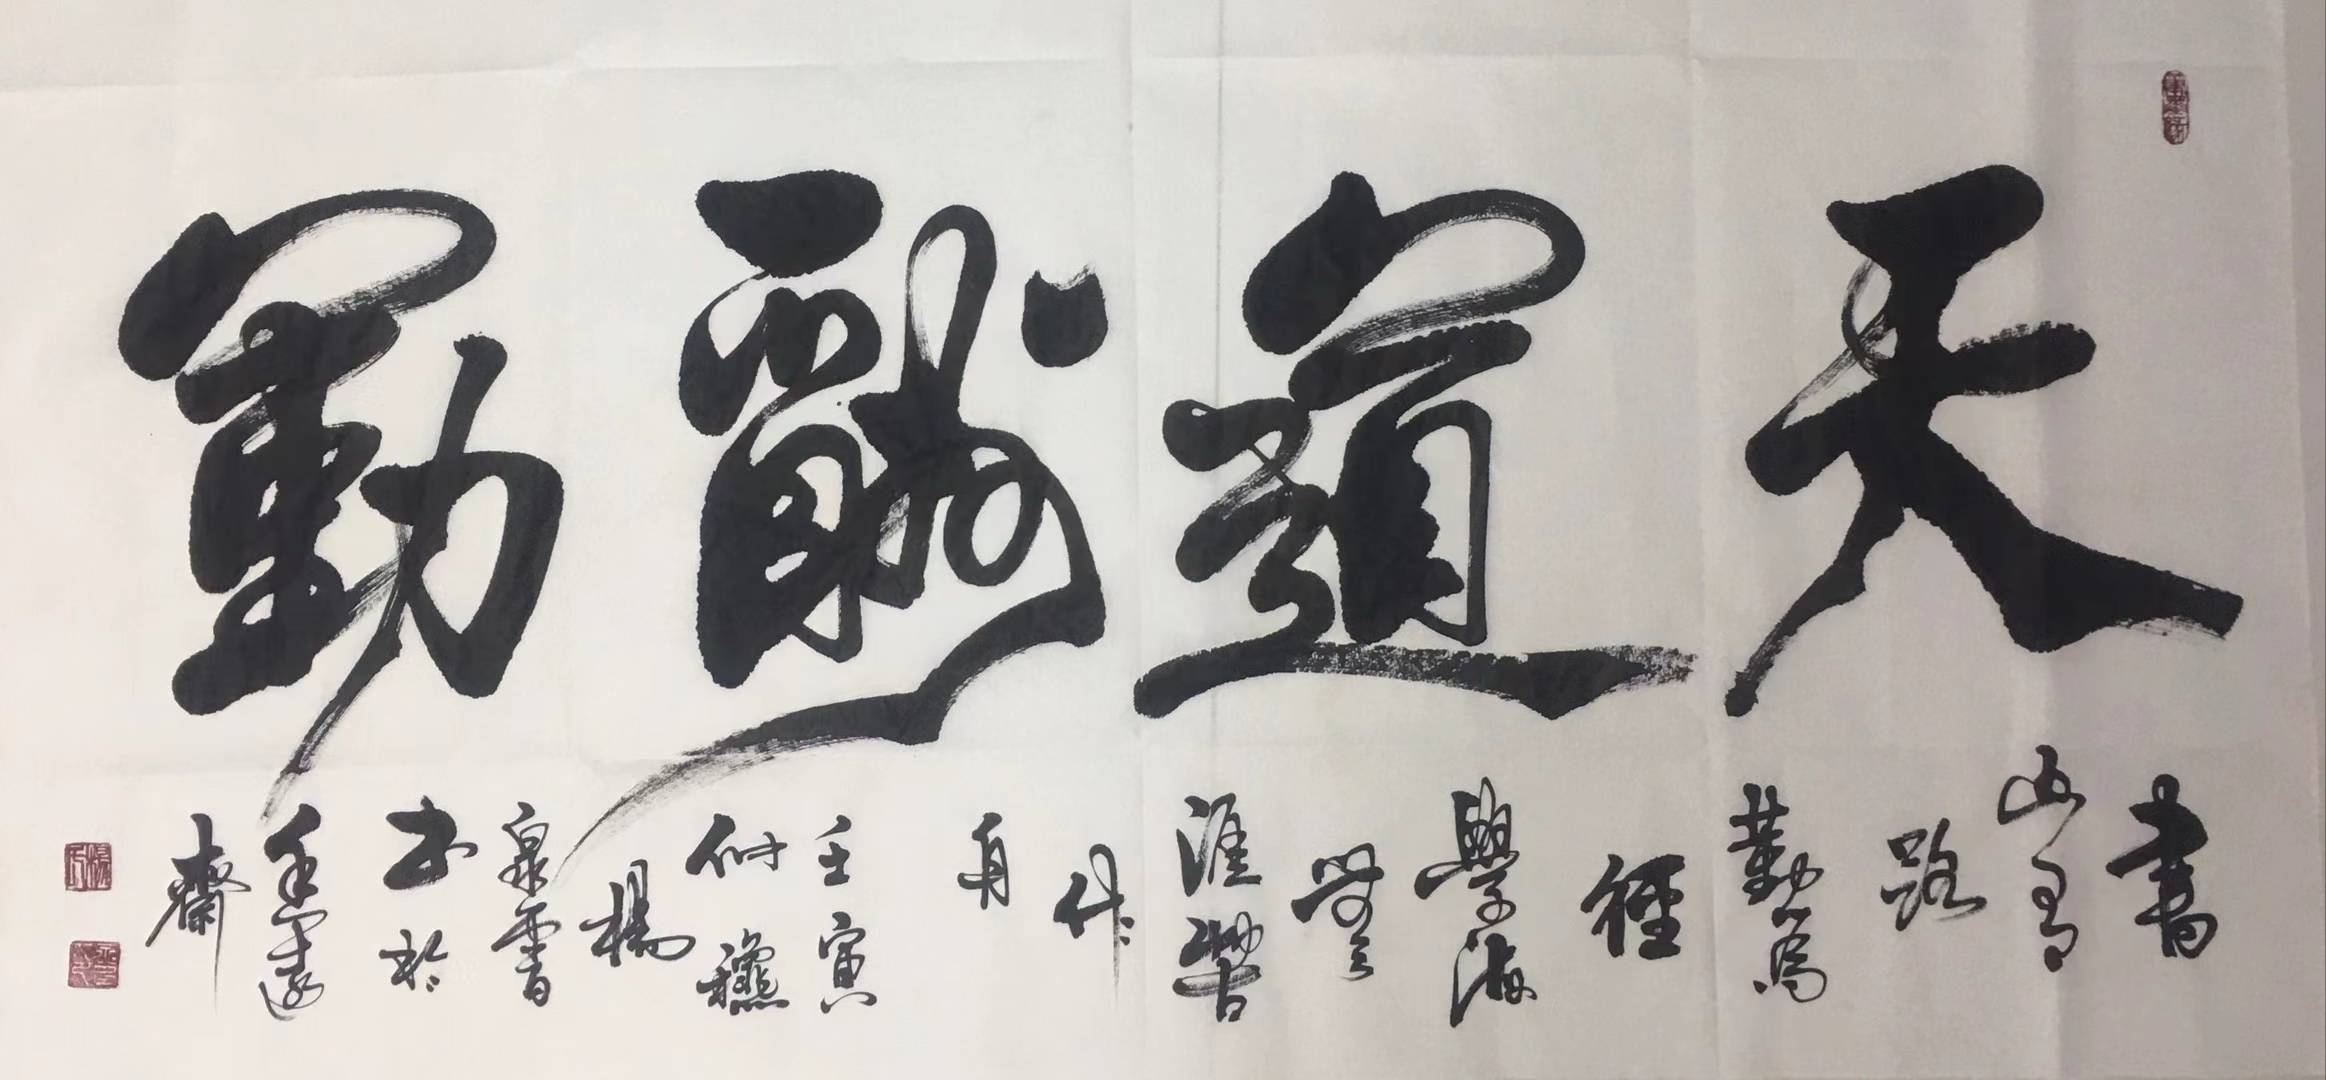 天道酬勤
書
山有
路
勤為
徑
學海
無
涯苦
作
舟
壬寅
仲秋
楊
泉書
書於
齋